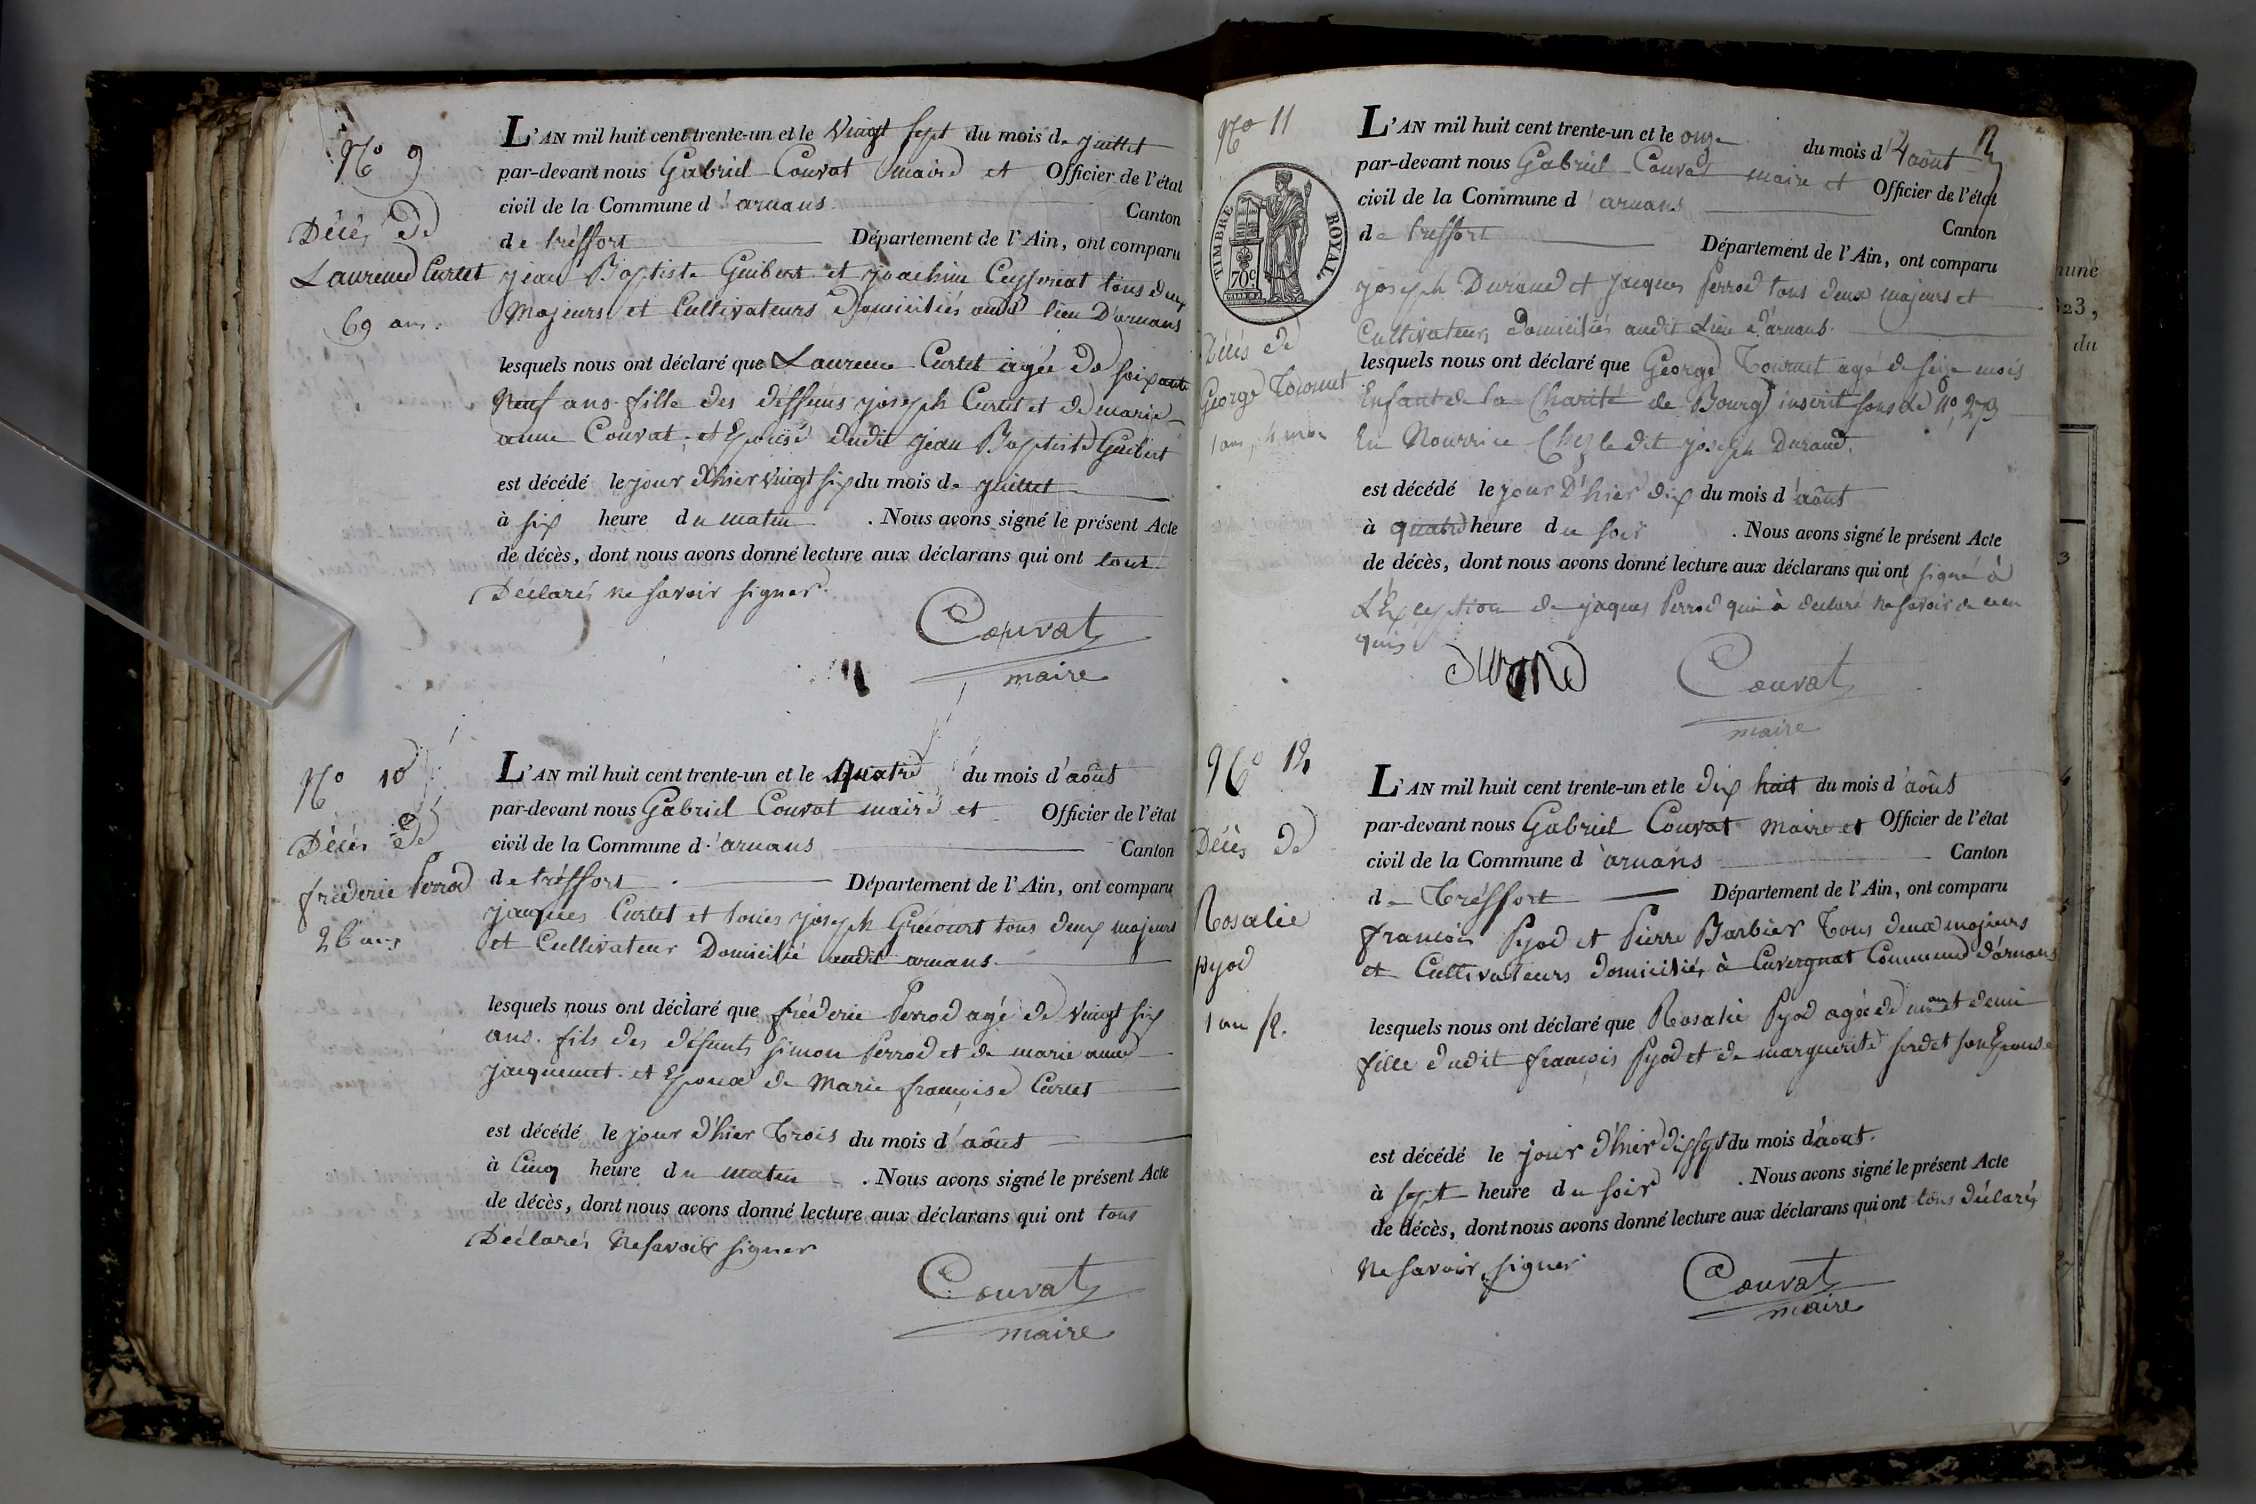 N° 9
Décès de
Laurence Curtet
69 ans.
L'AN mil huit cent trente-un et le vingt sept du mois de juillet
par-devant nous Gabriel Couvat maire et Officier de l'état
civil de la Commune d'arnans Canton
de tréffort Département de l'Ain, ont comparu
jean Baptiste Guibert et joachim Ceyseriat tous deux
Majeurs et Cultivateurs Domiciliés audit lieu D'arnans
lesquels nous ont déclaré que Laurence Curtet agée de soixante
Neuf ans fille des déffeuns joseph Curtet et de marie
anne Couvat, et Epouse dudit jean Baptiste Guibert
est décédé le jour d'hier vingt six du mois de juillet
à six heure du matin . Nous avons signé le présent Acte
de décès, dont nous avons donné lecture aux déclarans qui ont tous
Déclarés ne savoir signer.
Couvat
maire
N° 10
Décès de
frédéric Perrod
26 ans
L'AN mil huit cent trente-un et le quatre du mois d'août
par-devant nous Gabriel Couvat maire et Officier de l'état
civil de la Commune d'arnans Canton
de tréffort Département de l'Ain, ont comparu
jaques Curtet et louis joseph Grécourt tous deux majeurs
et Cultivateur Domicilié audit arnans.
lesquels nous ont déclaré que frédéric Perrod agé de vingt six
ans. fils des défunts simon Perrod et de marie anne
jaquemet. et Epoux de Marie françoise Curtet
est décédé le jour d'hier trois du mois d'août
à Cinq heure du matin . Nous avons signé le présent Acte
de décès, dont nous avons donné lecture aux déclarans qui ont tous
Déclarés Ne savoir signer
Couvat
maire
N° 11
TIMBRE ROYAL
70c
Décès de
George Tournut
1 ans, 4 mois
L'AN mil huit cent trente-un et le onze du mois d'août
par-devant nous Gabriel Couvat maire et Officier de l'état
civil de la Commune d'arnans Canton
de treffort Département de l'Ain, ont comparu
joseph Durand et jacques perrod tous deux majeurs et
Cultivateurs domiciliés audit Lieu d'arnans.
lesquels nous ont déclaré que George Tournut agé de seize mois
Enfant de la Charité de Bourg inscrit sous le N°, 273
En Nourrice Chez le dit joseph Durand.
est décédé le jour D'hier dix du mois d'août
à quatre heure du soir . Nous avons signé le présent Acte
de décès, dont nous avons donné lecture aux déclarans qui ont signé à
L'Exception de jaques Perrod qui à declaré ne savoir de ce en
quis
Durand
Couvat
maire
N° 12
Décès de
Rosalie
pyod
1 an 1/2.
L'AN mil huit cent trente-un et le dix huit du mois d'août
par-devant nous Gabriel Couvat Maire et Officier de l'état
civil de la Commune d'arnans Canton
de Tréffort Département de l'Ain, ont comparu
francois Pyod et Pierre Barbier Tous deux majeurs
et Cultivateurs domiciliés à Cuvergnat Commune d'arnans
lesquels nous ont déclaré que Rosalie Pyod agée de un an et demi
fille dudit françois Pyod et de marguerite sordet son Epouse
est décédé le jour d'hier dix sept du mois d'août.
à sept heure du soir . Nous avons signé le présent Acte
de décès, dont nous avons donné lecture aux déclarans qui ont tous déclarés
Ne savoir signer
Couvat
maire